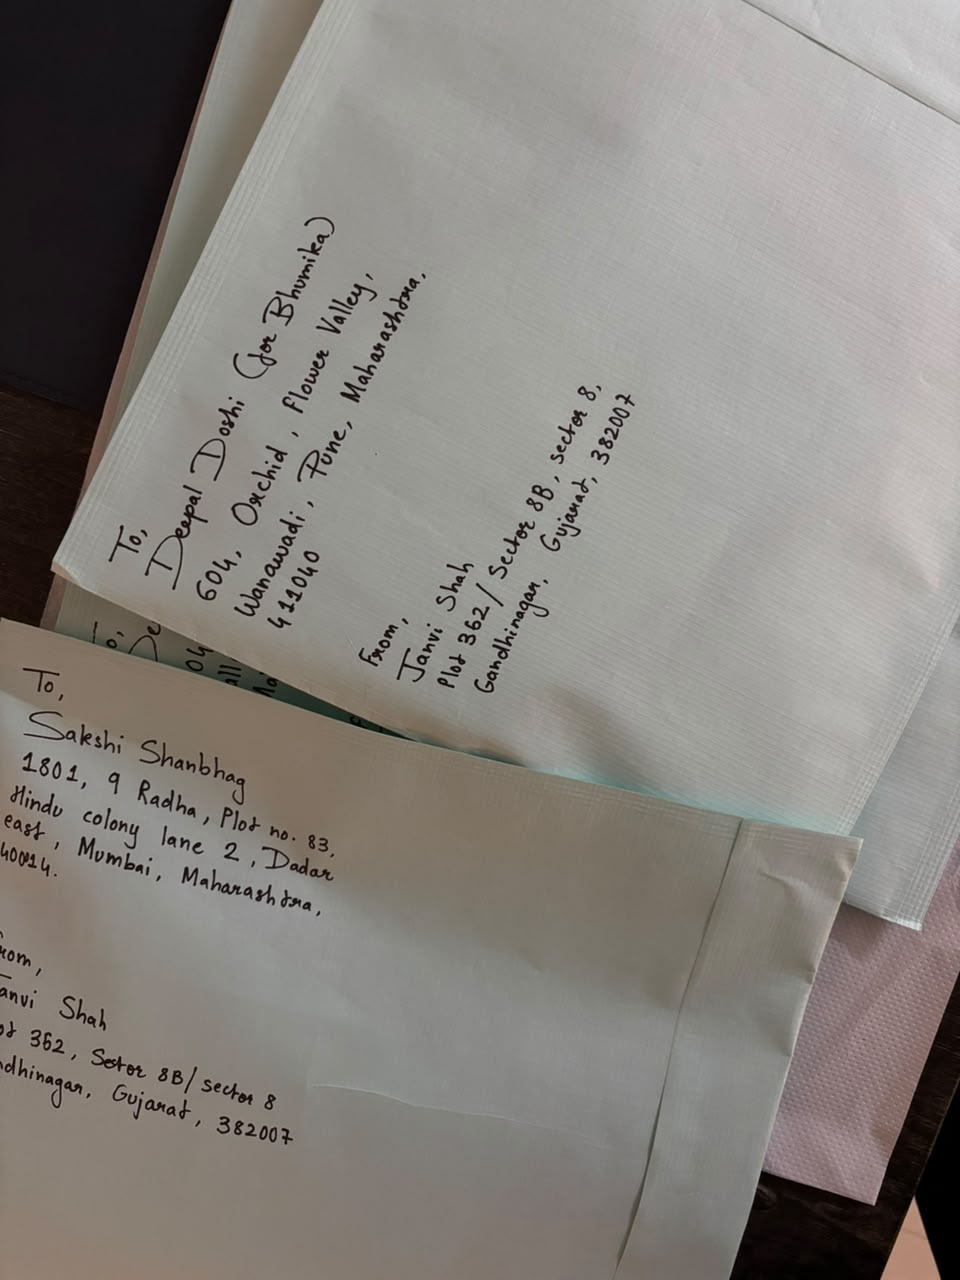 To,
Deepal Doshi (for Bhumika)
604, Orchid, Flower Valley,
Wanawadi, Pune, Maharashtra,
411040
From,
Janvi Shah
Plot 362/Sector 8B, sector 8,
Gandhinagar, Gujarat, 382007
To,
De
04
all
Ma
To,
Sakshi Shanbhag
1801, 9 Radha, Plot no. 83,
Hindu colony lane 2, Dadar
east, Mumbai, Maharashtra,
rom,
anvi Shah
ot 362, Sector 8B/sector 8
ndhinagar, Gujarat, 382007